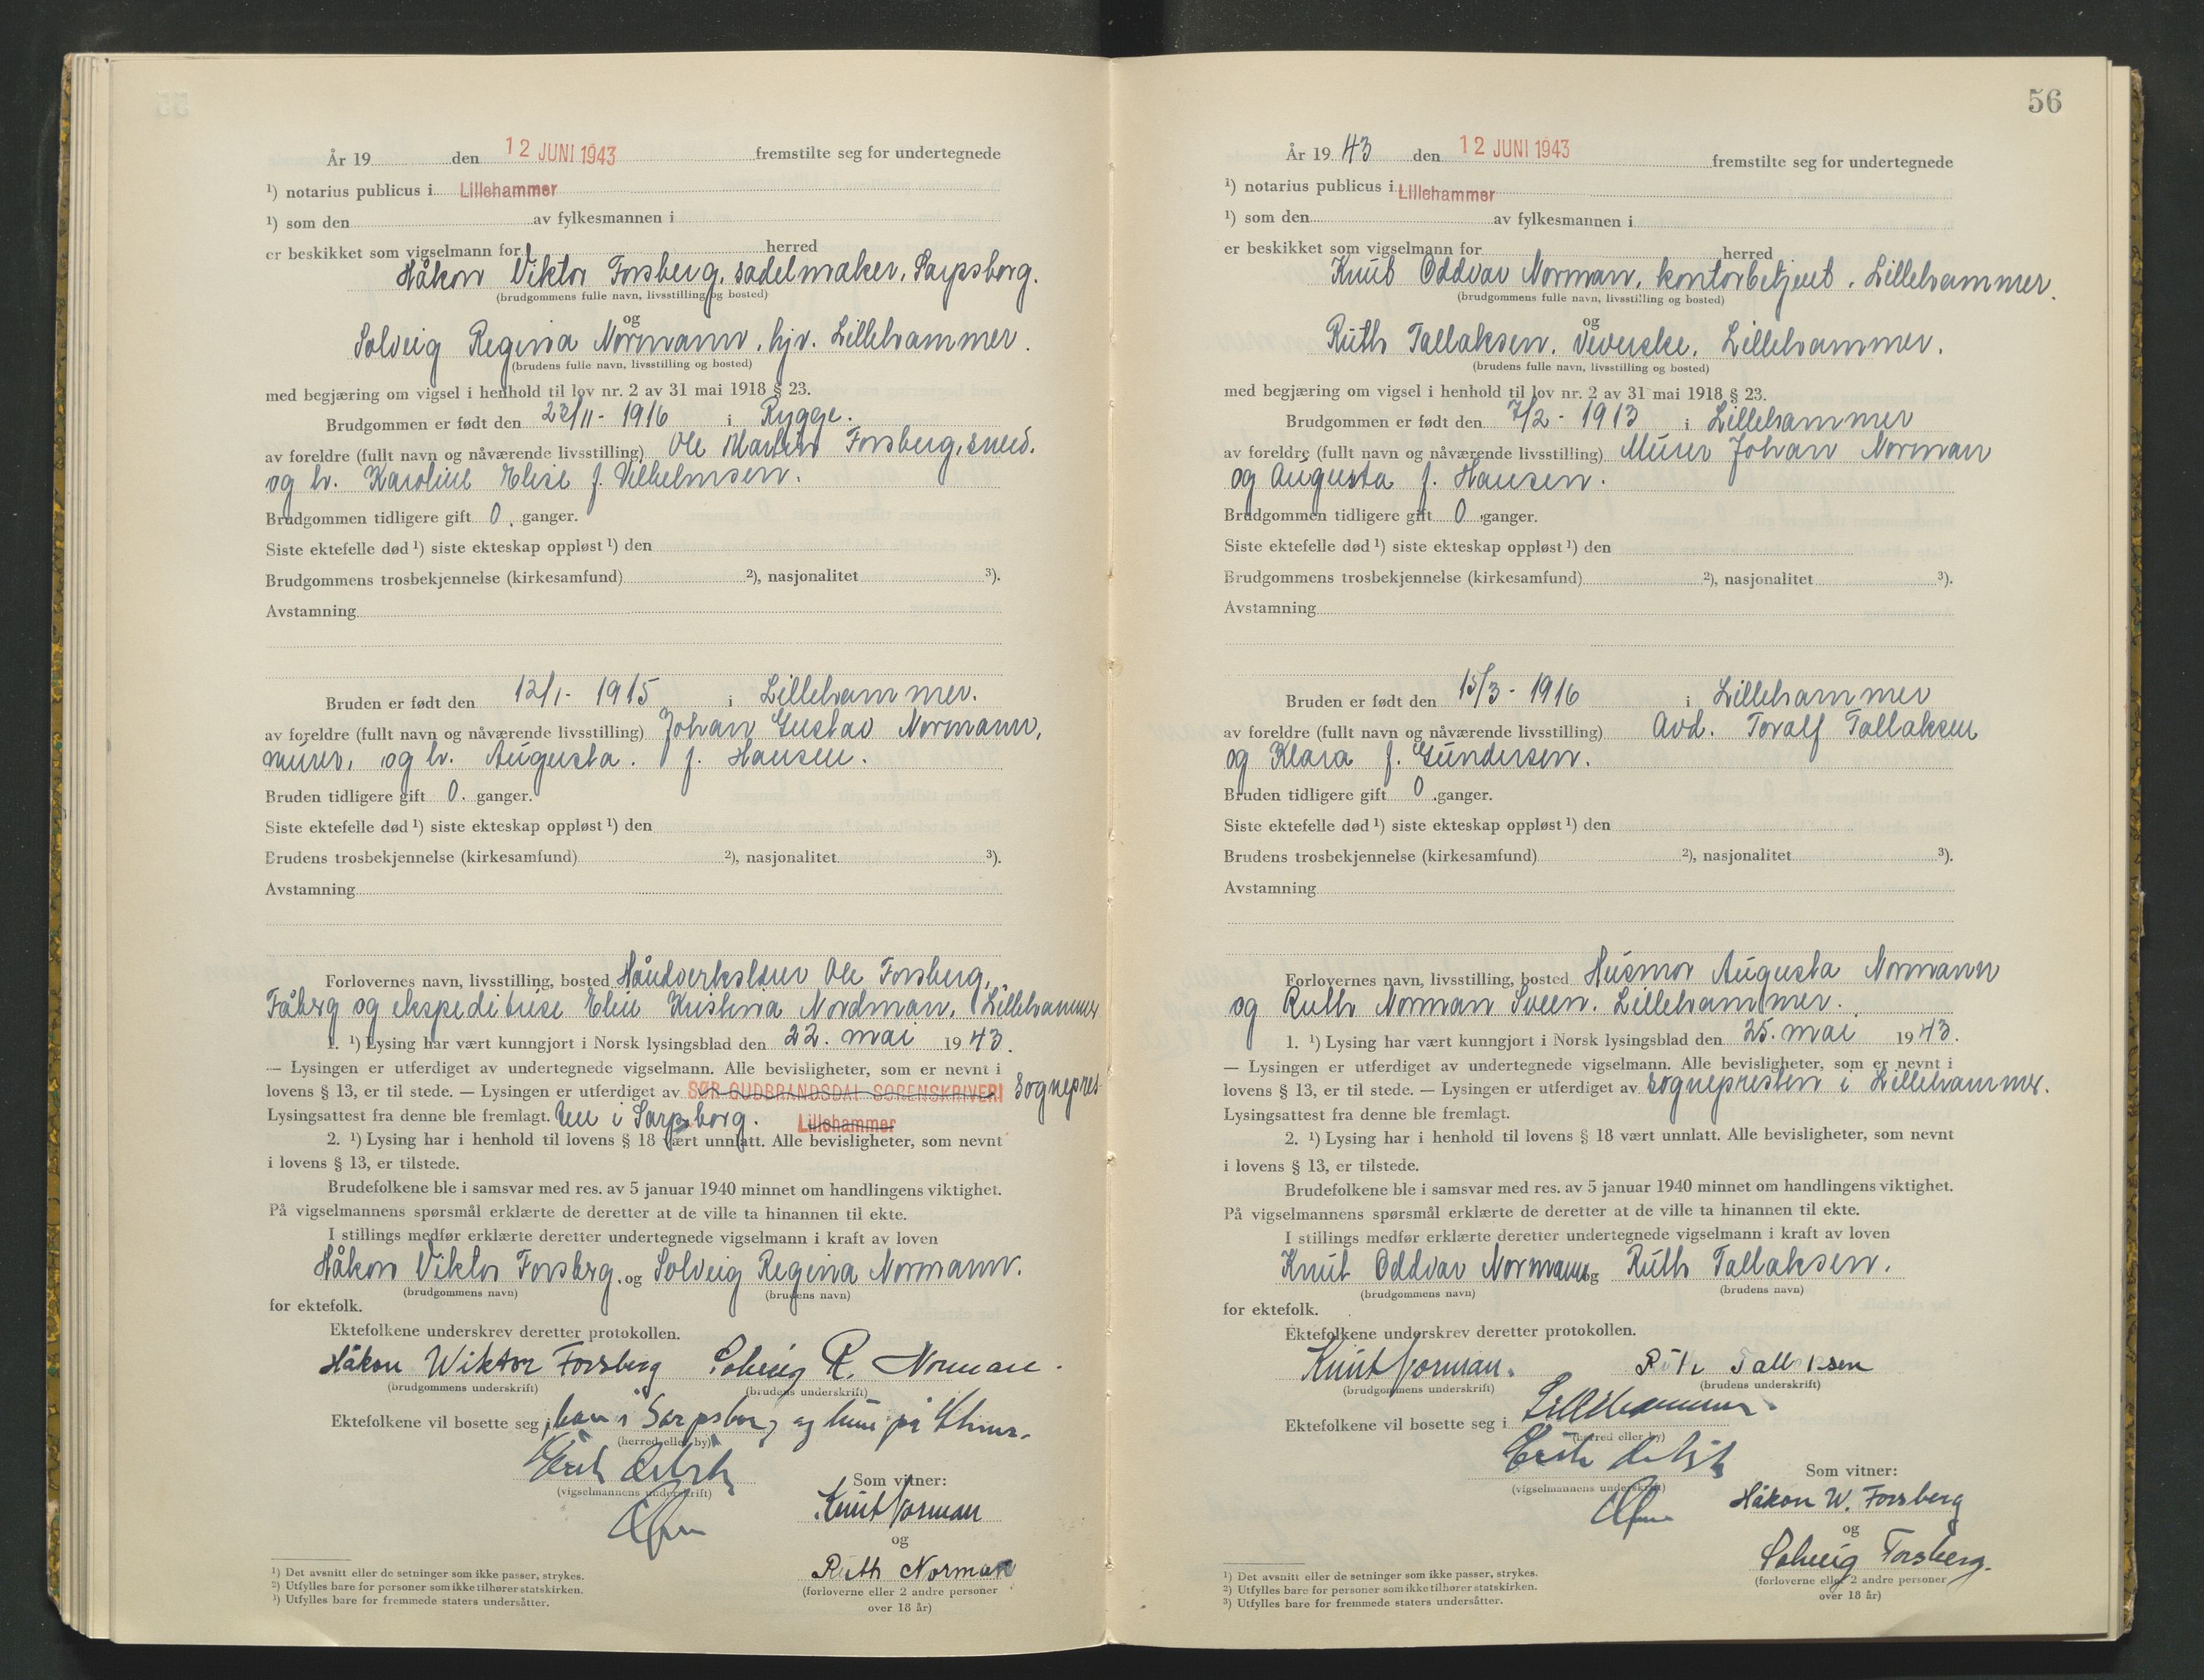 År 19 den 12 JUNI 1943 fremstilte seg for undertegnede
¹) notarius publicus i Lillehammer
¹) som den av fylkesmannen i
er beskikket som vigselmann for herred
Håkon Viktor Forsberg, sadelmaker, Sarpsborg.
(brudgommens fulle navn, livsstilling og bosted)
og
Solveig Regina Normann, hjv. Lillehammer.
(brudens fulle navn, livsstilling og bosted)
med begjæring om vigsel i henhold til lov nr. 2 av 31 mai 1918 § 23.
Brudgommen er født den 23/11- 1916 i Rygge.
av foreldre (fullt navn og nåværende livsstilling) Ole Martin Forsberg, smed.
og h. Karoline Elise f. Vilhelmsen.
Brudgommen tidligere gift 0. ganger.
Siste ektefelle død ¹) siste ekteskap oppløst ¹) den
Brudgommens trosbekjennelse (kirkesamfund) ²), nasjonalitet ³).
Avstamning
Bruden er født den 12/1- 1915 i Lillehammer.
av foreldre (fullt navn og nåværende livsstilling) Johan Gustav Normann,
murer, og h. Augusta. f. Hansen.
Bruden tidligere gift 0. ganger.
Siste ektefelle død ¹) siste ekteskap oppløst ¹) den
Brudens trosbekjennelse (kirkesamfund) ²), nasjonalitet ³).
Avstamning
Forlovernes navn, livsstilling, bosted Ole Forsberg,
Fåberg og ekspeditrise Elise Kristina Nordman, Lillehammer
1. ¹) Lysing har vært kunngjort i Norsk lysingsblad den 22. mai 1943.
— Lysingen er utferdiget av undertegnede vigselmann. Alle bevisligheter, som er nevnt i
lovens § 13, er til stede. — Lysingen er utferdiget av SØR-GUDBRANDSDAL SORENSKRIVERI Sognepres
Lysingsattest fra denne ble fremlagt. ten i Sarpsborg. Lillehammer
2. ¹) Lysing har i henhold til lovens § 18 vært unnlatt. Alle bevisligheter, som nevnt
i lovens § 13, er tilstede.
Brudefolkene ble i samsvar med res. av 5 januar 1940 minnet om handlingens viktighet.
På vigselmannens spørsmål erklærte de deretter at de ville ta hinannen til ekte.
I stillings medfør erklærte deretter undertegnede vigselmann i kraft av loven
Håkon Viktor Forsberg. og Solveig Regina Normann.
(brudgommens navn) (brudens navn)
for ektefolk.
Ektefolkene underskrev deretter protokollen.
Håkon Wiktor Forsberg Solveig R. Norman.
(brudgommens underskrift) (brudens underskrift)
Ektefolkene vil bosette seg i han i Sarpsborg og hun på
(herred eller by)
(vigselmannens underskrift)
Som vitner:
Knut Norman
og
Ruth Norman
(forloverne eller 2 andre personer
over 18 år)
¹) Det avsnitt eller de setninger som ikke passer, strykes.
²) Utfylles bare for personer som ikke tilhører statskirken.
³) Utfylles bare for fremmede staters undersåtter.
56
År 19 43 den 12 JUNI 1943 fremstilte seg for undertegnede
¹) notarius publicus i Lillehammer
¹) som den av fylkesmannen i
er beskikket som vigselmann for herred
Knut Oddvar Norman, kontorbetjent, Lillehammer.
(brudgommens fulle navn, livsstilling og bosted)
og
Ruth Tallaksen, Veverske, Lillehammer.
(brudens fulle navn, livsstilling og bosted)
med begjæring om vigsel i henhold til lov nr. 2 av 31 mai 1918 § 23.
Brudgommen er født den 7/2 - 1913 i Lillehammer
av foreldre (fullt navn og nåværende livsstilling) Murer Johan Norman
og Augusta f. Hansen.
Brudgommen tidligere gift 0 ganger.
Siste ektefelle død ¹) siste ekteskap oppløst ¹) den
Brudgommens trosbekjennelse (kirkesamfund) ²), nasjonalitet ³).
Avstamning
Bruden er født den 15/3 - 1916 i Lillehammer
av foreldre (fullt navn og nåværende livsstilling) Avd. Toralf Tallaksen
og Klara f. Gundersen.
Bruden tidligere gift 0 ganger.
Siste ektefelle død ¹) siste ekteskap oppløst ¹) den
Brudens trosbekjennelse (kirkesamfund) ²), nasjonalitet ³).
Avstamning
Forlovernes navn, livsstilling, bosted Husmor Augusta Normann
og Ruth Norman Sveen. Lillehammer.
1. ¹) Lysing har vært kunngjort i Norsk lysingsblad den 25. mai 1943.
— Lysingen er utferdiget av undertegnede vigselmann. Alle bevisligheter, som er nevnt i
lovens § 13, er til stede. — Lysingen er utferdiget av sognepresten i Lillehammer.
Lysingsattest fra denne ble fremlagt.
2. ¹) Lysing har i henhold til lovens § 18 vært unnlatt. Alle bevisligheter, som nevnt
i lovens § 13, er tilstede.
Brudefolkene ble i samsvar med res. av 5 januar 1940 minnet om handlingens viktighet.
På vigselmannens spørsmål erklærte de deretter at de ville ta hinannen til ekte.
I stillings medfør erklærte deretter undertegnede vigselmann i kraft av loven
Knut Oddvar Normann og Ruth Tallaksen.
(brudgommens navn) (brudens navn)
for ektefolk.
Ektefolkene underskrev deretter protokollen.
Knut Norman. Ruth Tallaksen
(brudgommens underskrift) (brudens underskrift)
Ektefolkene vil bosette seg i Lillehammer.
(herred eller by)
(vigselmannens underskrift)
Som vitner:
Håkon W. Forsberg
og
Solveig Forsberg.
(forloverne eller 2 andre personer
over 18 år)
¹) Det avsnitt eller de setninger som ikke passer, strykes.
²) Utfylles bare for personer som ikke tilhører statskirken.
³) Utfylles bare for fremmede staters undersåtter.